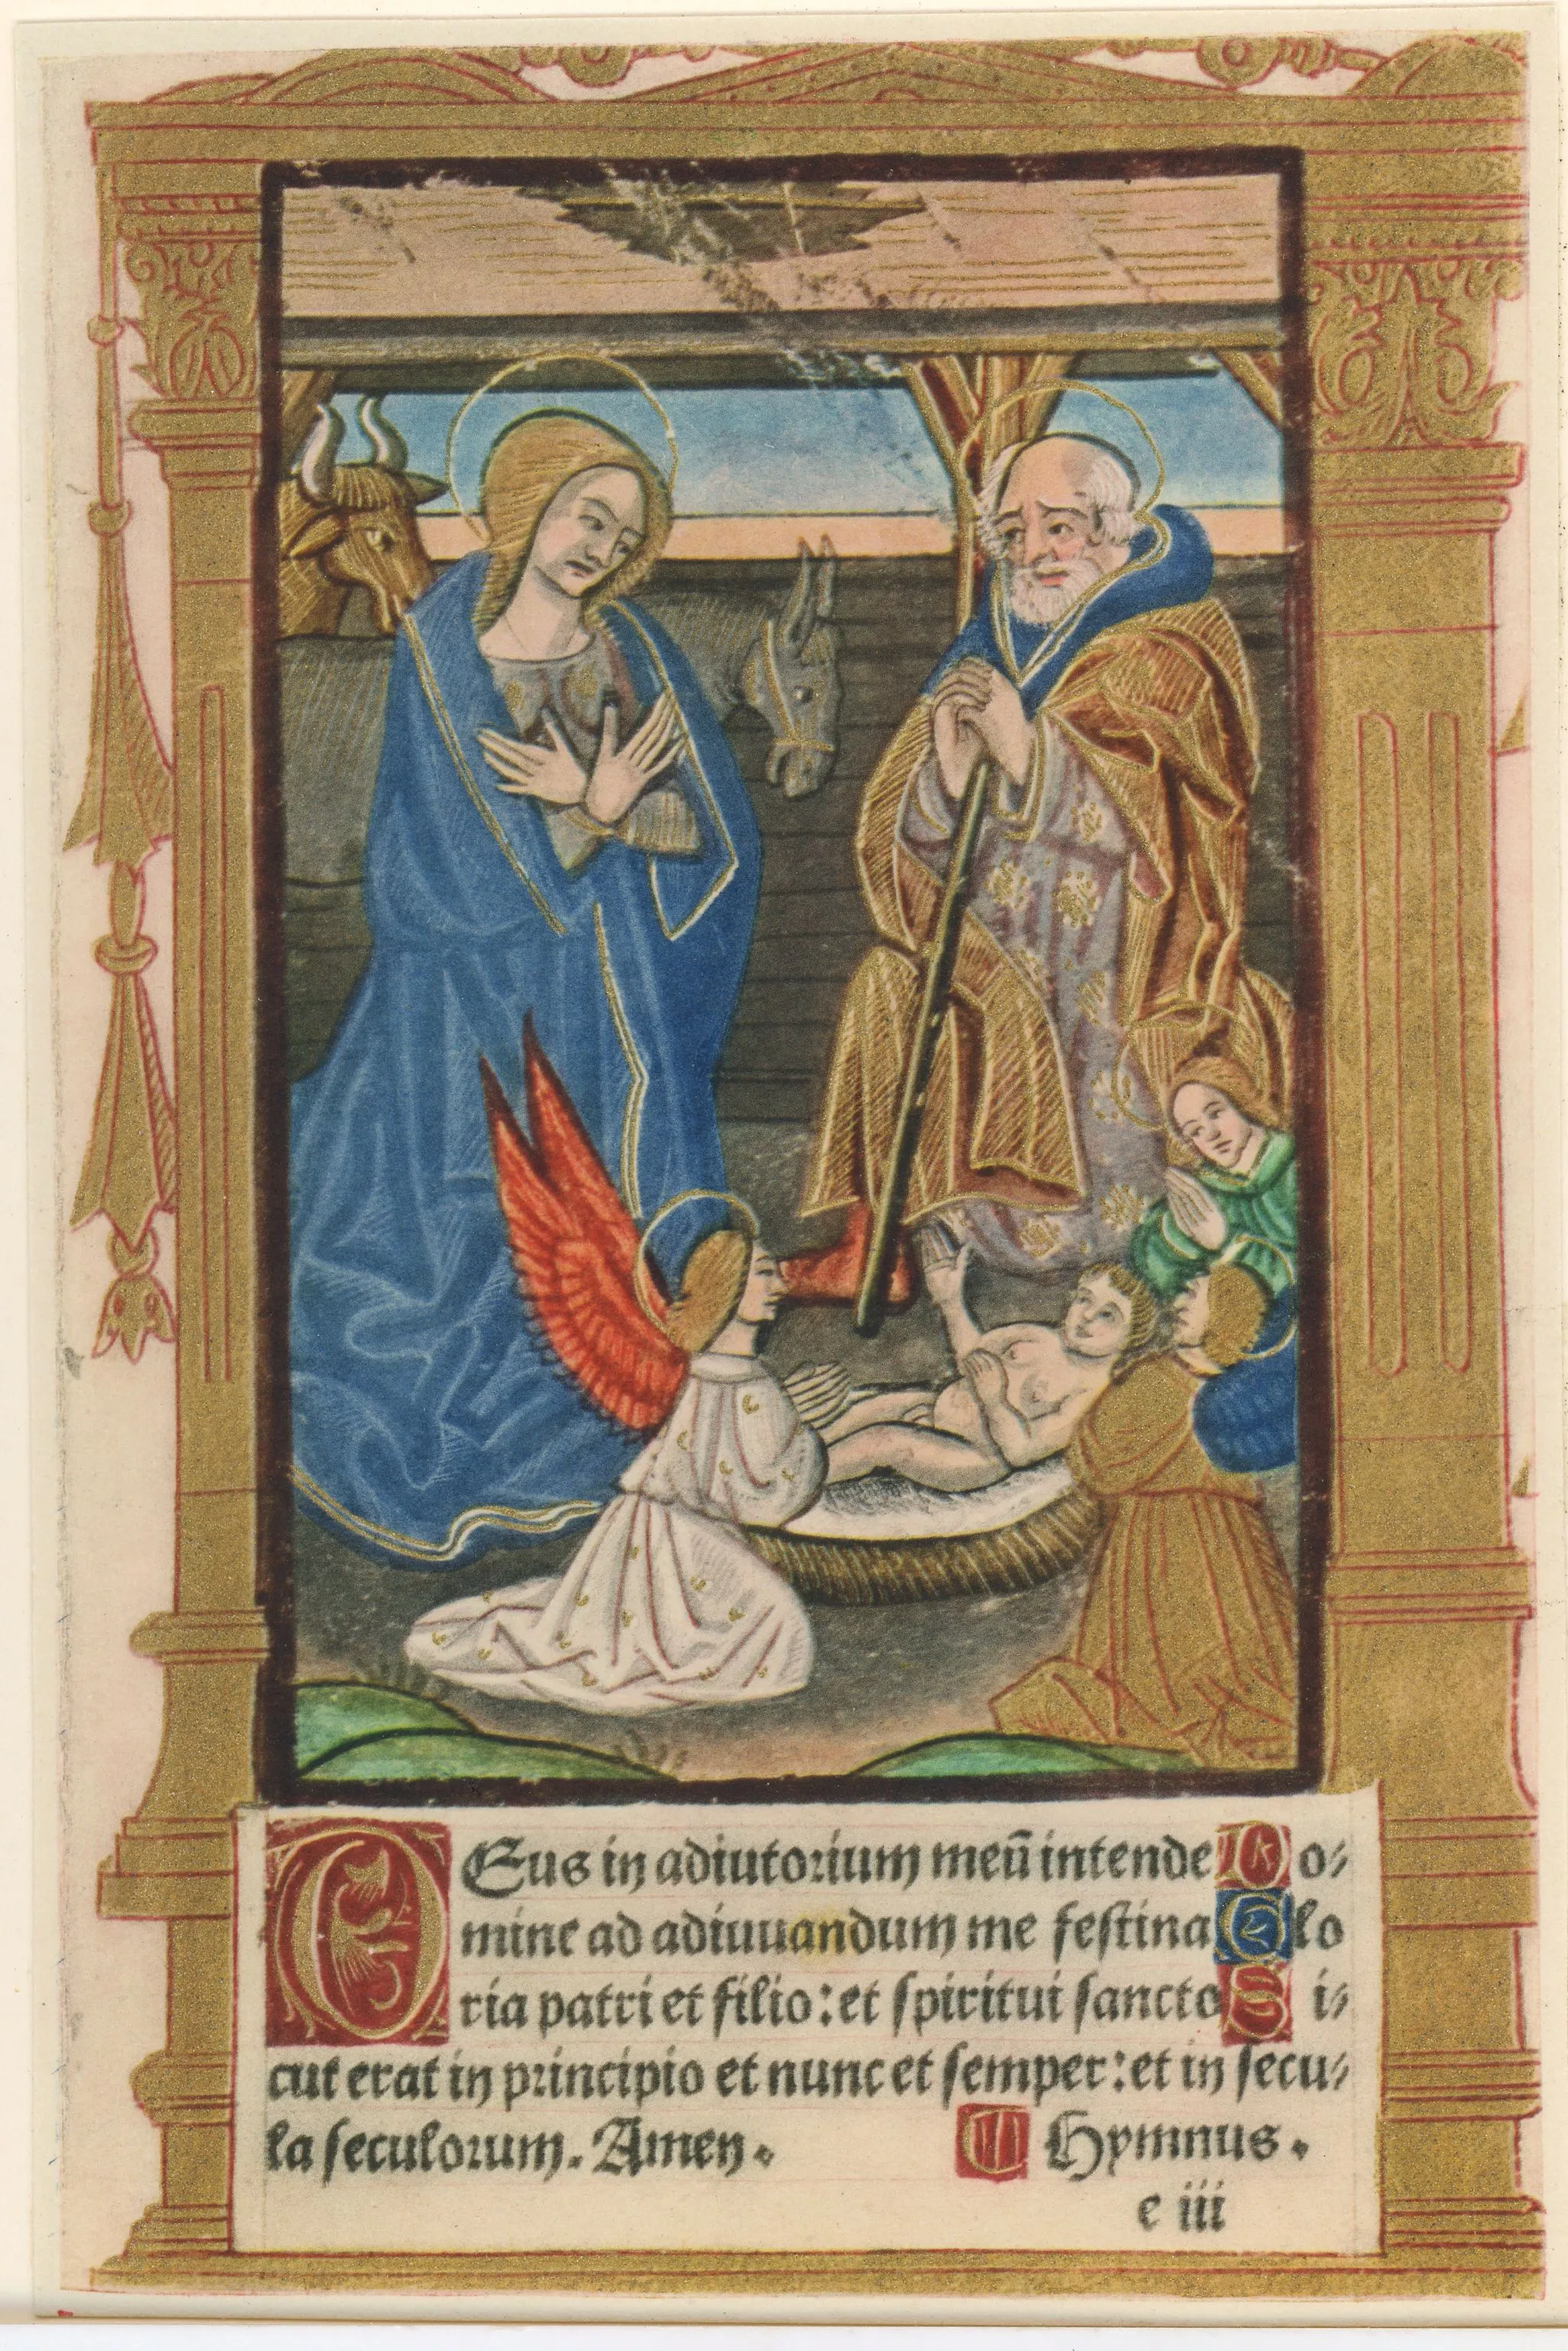 DEus in adiutorium meū intende Do⸗
mine ad adiuuandum me festina Glo
ria patri et filio: et spiritui sancto Si⸗
cut erat in principio et nunc et semper: et in secu⸗
la seculorum. Amen. ¶ Hymnus.
e iii